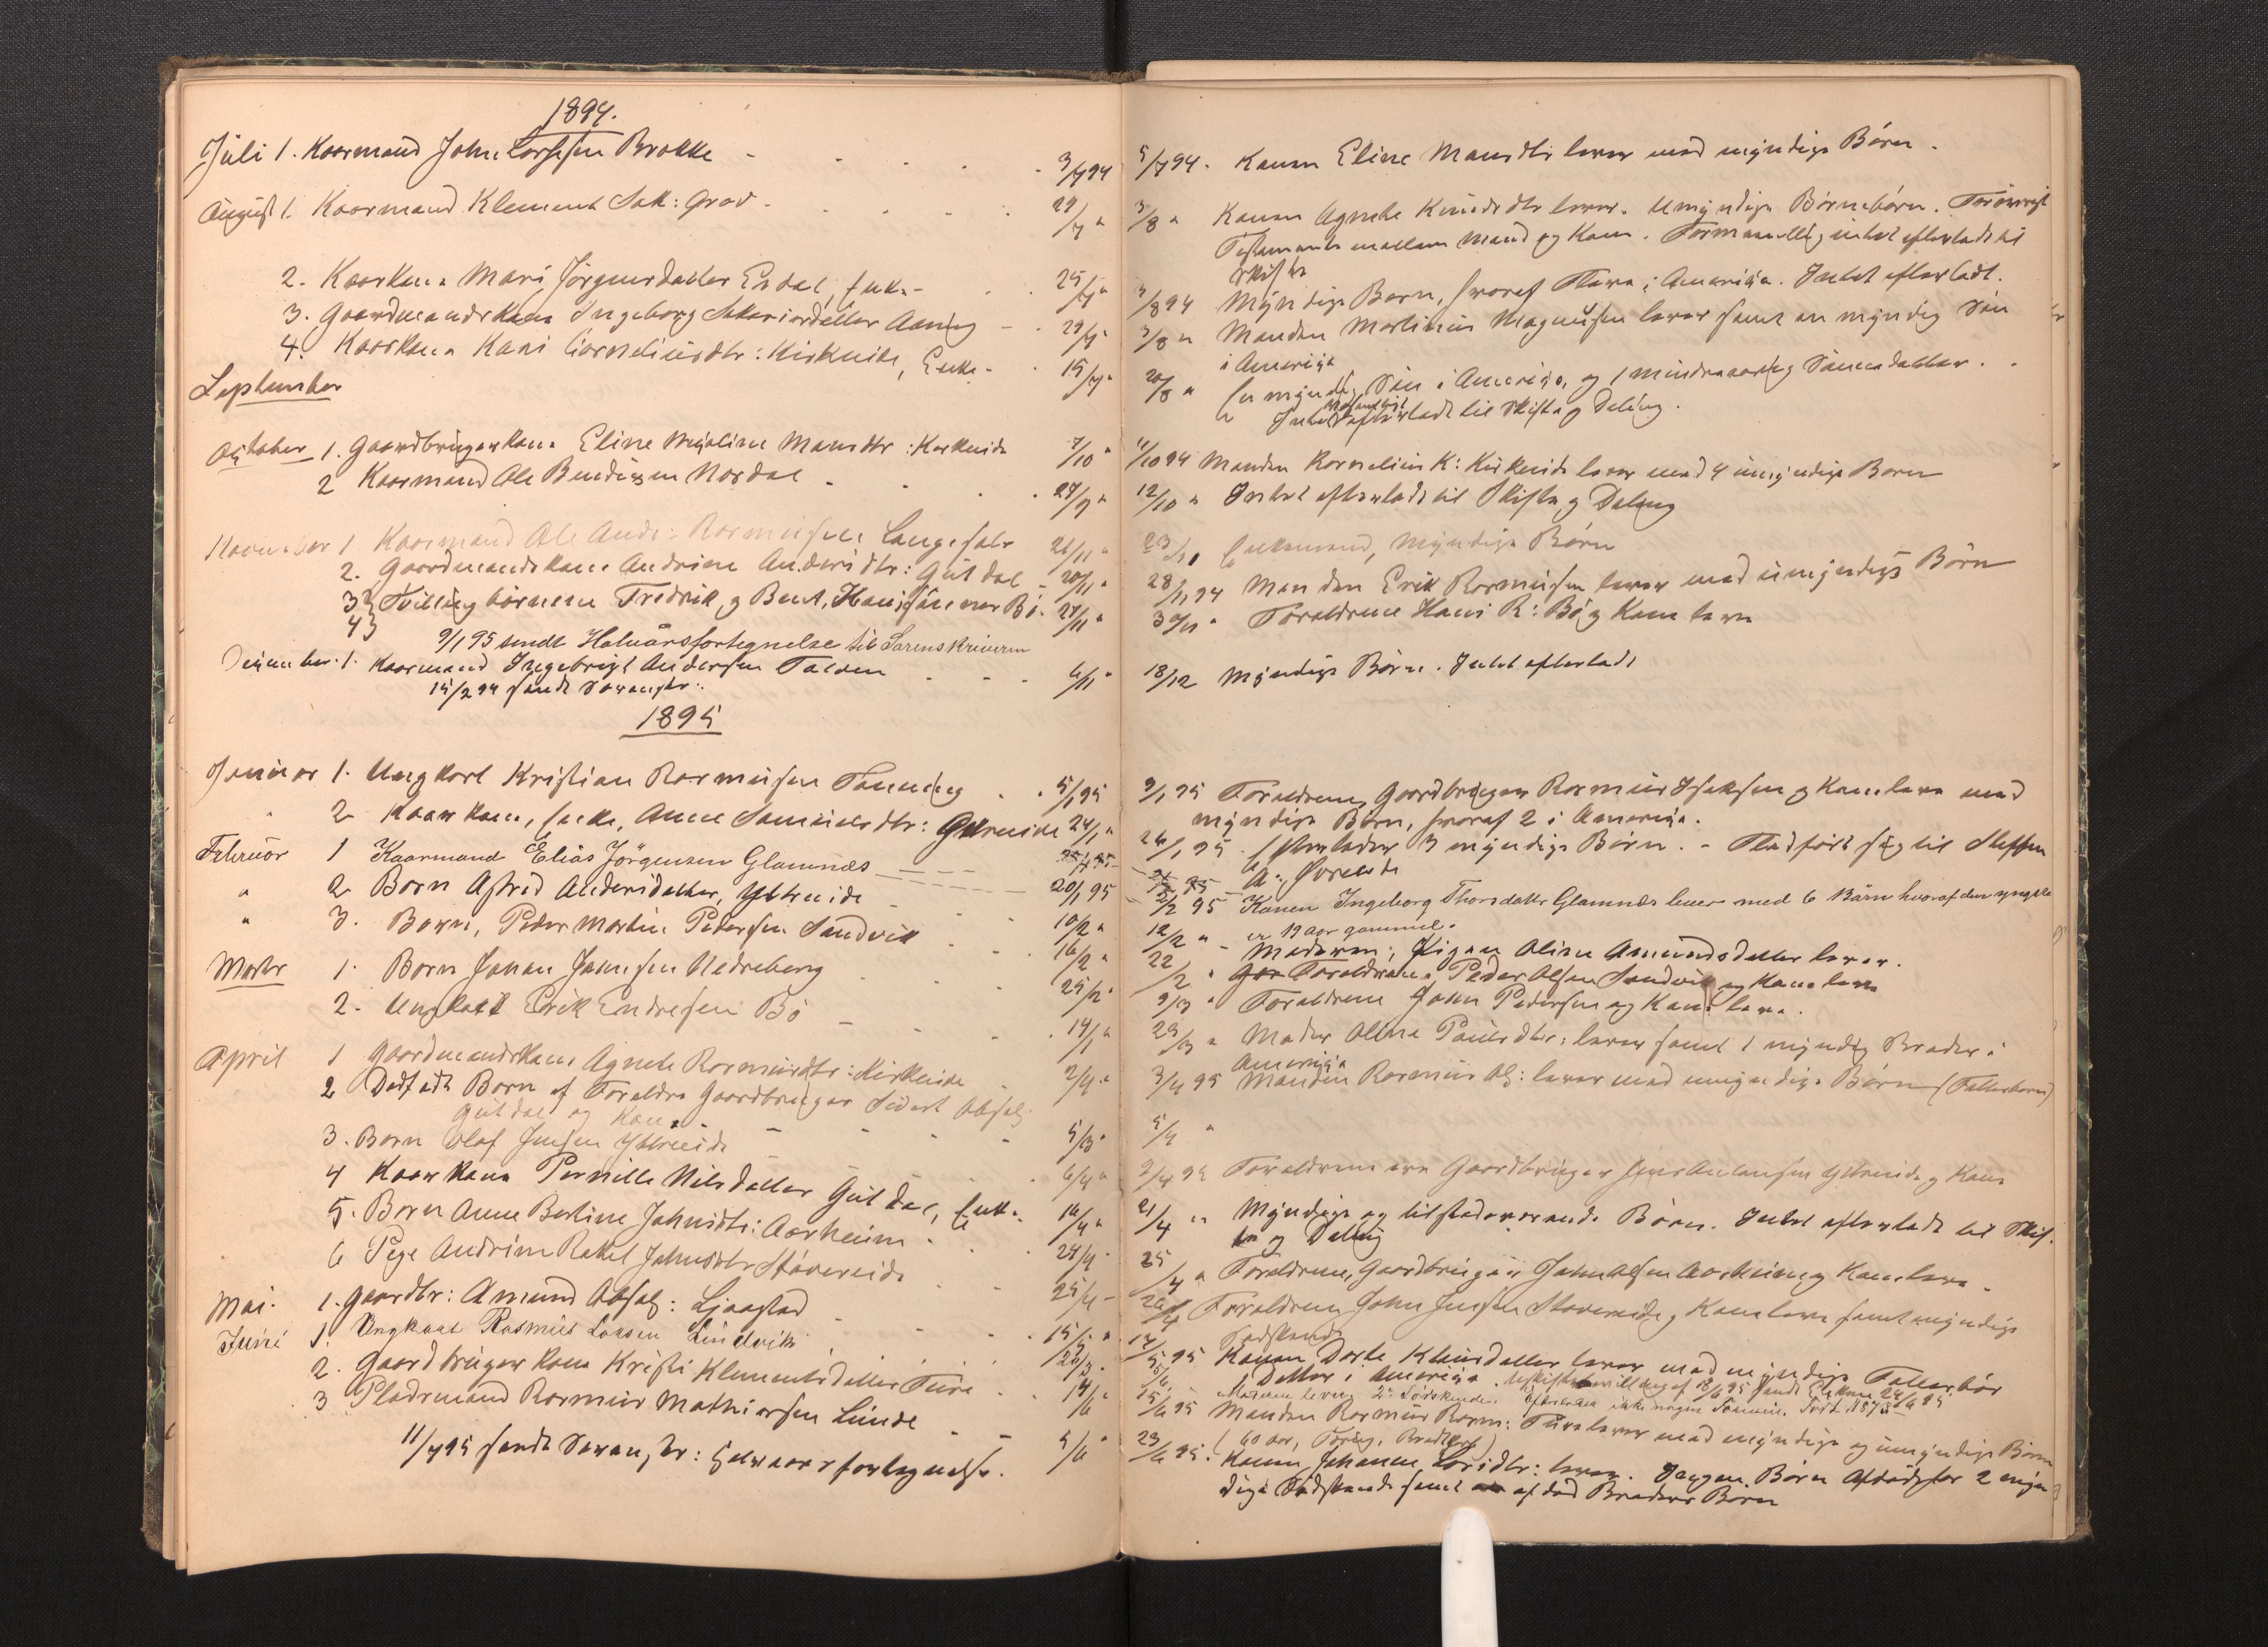 1894.
Juli 1. Kaarmand John Larssen Brakke - 3/7 94
August 1. Kaarmand Klement Sak: Grov - 29/7 "
2. Kaarkone Mari Jørgensdatter Endal, Enke - 25/7 "
3. Gaardmandskone Ingeborg Sakariasdatter Aaning - 29/7 "
4. Kaarkone Kari Corneliusdtr: Kirkeide, Enke - 15/7 "
September
October 1. Gaardbrugerkone Eline Mansdtr: Kirkeide 7/10 "
2 Kaarmand Ole Bendixen Nordal - 27/9 "
November 1 Kaarmand Ole Andr: Rasmussen Langesæter 21/11 "
2. Gaardmandskone Andrine Andersdtr: Guldal - 20/11 "
3} Tvillingbørnene Fredrik og Bent, Hans sønner Bö. 27/11 "
4}
9/1 95 sendt Halvårsfortegnelse til Sorenskriveren
December. 1. Kaarmand Ingebrigt Andersen Talden - 6/11 "
15/2 94 sendt Sorenskr..
1895
Januar 1. Ungkarl Kristian Rasmussen Tonning - 5/1 95
" 2 Kaarkone, Enke, Anne Samuelsdtr: Ytreeide 24/1 "
Februar 1 Kaarmand Elias Jörgensen Glamnæs
" 2 Barn Astrid Andersdatter, Ytreeide - 20/1 95
" 3. Barn, Peder Martin Pedersen Sandvik - 10/2 "
Marts 1. Barn Johan Johnsen Nedreberg - 16/2 "
2. Ungkarl Erik Endresen Bö - 25/2 "
April 1 Gaardmandskone Agnete Rasmusdtr: Kirkeide - 14/1 "
2 Dødfødt Barn af Forældre Gaardbruger Sivert Absal: 2/4 "
Guldal og Kone -
3. Barn Olaf Jensen Ytreeide - 5/3 "
4 Kaarkone Pernille Nilsdatter Guldal, Enke. 6/4 "
5. Barn Anne Bertine Johnsdtr: Aarheim - 16/4 "
6 Pige Andrine Rakel Johnsdtr Støvereide 24/4 "
Mai. 1. Gaardbr: Amund Absal: Ljosstad - 25/4 -
Juni 1. Ungkarl Rasmus Larsen Lindvik - 15/5 "
2. Gaardbrugerkone Kristi Klementsdatter Fure - 26/3 "
3 Pladsmand Rasmus Mathiassen Lunde - 14/6
11/7 95 sendt Sorenskr: Halvaarsfortegnelse. 5/6 "
5/7 94. Konen Eline Mansdtr lever med myndige Børn.
3/8 " Konen Agnete Knudsdtr lever. Umyndige Børnebørn. Forøvrigt
Testamente mellem Mand og Kone. Formentlig intet efterladt til
Skifte
3/8 94 Myndige Børn, hvoraf Flere i Amerika. Intet efterladt.
3/8 " Manden Martinus Magnussen lever samt en myndig Søn
i Amerika
20/8 " En myndig Søn i Amerika, og 1 mindreaarig Sønnedatter.
Intet efterladt til Skifte og Deling.
11/10 94 Manden Kornelius K: Kirkeide lever med 4 umyndige Børn
12/10 " Intet efterladt til Skifte og Deling
23/11 Enkemand, Myndige Børn
28/11 94 Manden Erik Rasmussen lever med umyndige Børn
30/11 " Forældrene Hans R: Bö og Kone leve
18/12 Myndige Børn. Intet efterladt
9/1 95 Forældrene, Gaardbruger Rasmus Isaksen og Kone leve med
myndige Børn, hvoraf 2 i Amerika.
26/1 95. Efterlader 3 myndige Børn. - Fladført sig til Steffen
A:
5/2 95 - Konen Ingeborg Thorsdatter Glamnæs lever med 6 Börn hvoraf den yngste
er 19 aar gammel.
12/2 " - Moderen; Pigen Oline Amundsdatter lever.
22/2 " Forældrene Peder Olsen Sandvik og Kone leve
9/3 " Forældrene John Pedersen og Kone leve.
29/3 " Moder Oline Paulsdtr: lever samt 1 myndig Broder i
Amerika
3/4 95 Manden Rasmus Ol: lever med umyndige Børn (Fællesbørn)
5/4 "
9/4 95 Forældrene ere Gaardbruger Jens Antonsen Ytreeide og Kone
21/4 " Myndige og tilstedeværende Børn. Intet efterladt til Skif-
te og Deling
25/4 " Forældrene, Gaardbruger John Olsen Aarheim og Kone leve.
26/4 Forældrene John Jensen Støvereide og Kone leve samt myndige
Sødskende
14/5 95 Konen Dorte Klausdatter lever med myndige Fællesbør
1 Datter i Amerika. Uskiftebevilling af 18/6 95 sendt Enken 24/6 95
Moderen lever, 2 Sødskende. Efterlader ikke nogen Formue. Født 1873
15/6 95 Manden Rasmus Rasm: Fure lever med myndige og umyndige Børn
(60 Aar,
23/6 95. Konen Johanne Larsdtr: lever. Ingen Børn Afdøde har 2 myn
dige Sødskende samt af død Broders Børn